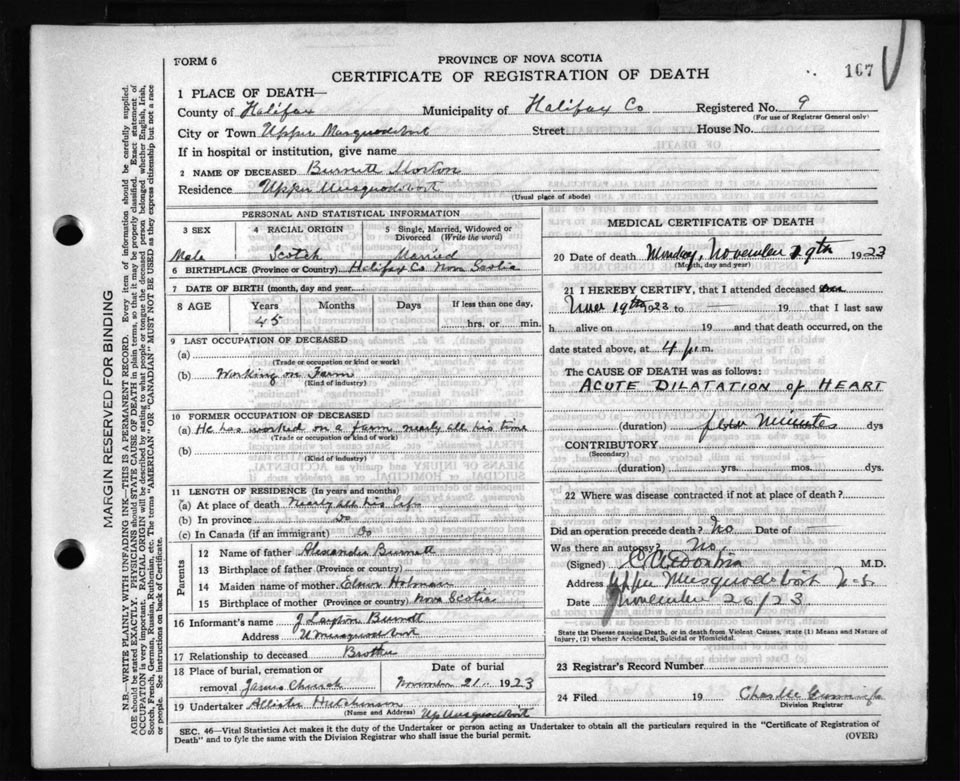 FORM 6
PROVINCE OF NOVA SCOTIA
CERTIFICATE OF REGISTRATION OF DEATH
167
1 PLACE OF DEATH—
County of Halifax Municipality of Halifax Co Registered No. 9
(For use of Registrar General only)
City or Town Upper Musquodoboit Street House No.
If in hospital or institution, give name
2 NAME OF DECEASED Burnett Morton
Residence Upper Musquodoboit
(Usual place of abode)
PERSONAL AND STATISTICAL INFORMATION
3 SEX 4 RACIAL ORIGIN 5 Single, Married, Widowed or Divorced (Write the word)
Male Scotch Married
6 BIRTHPLACE (Province or Country) Halifax Co Nova Scotia
7 DATE OF BIRTH (month, day and year)
8 AGE Years Months Days If less than one day,
45 hrs. or min.
9 LAST OCCUPATION OF DECEASED
(a)
(Trade or occupation or kind or work)
(b) Working on Farm
(Kind of industry)
10 FORMER OCCUPATION OF DECEASED
(a) He has worked on a farm nearly all his time
(Trade or occupation or kind of work)
(b)
(Kind of industry)
11 LENGTH OF RESIDENCE (In years and months)
(a) At place of death Nearly all his life
(b) In province Do
(c) In Canada (if an immigrant) Do
Parents
12 Name of father Alexander Burnett
13 Birthplace of father (Province or country)
14 Maiden name of mother Holman
15 Birthplace of mother (Province or country) Nova Scotia
16 Informant's name J Layton Burnett
Address U Musquodoboit
17 Relationship to deceased Brother
18 Place of burial, cremation or removal James Church Date of burial November 21 1923
19 Undertaker Allister Hutchinson
(Name and Address) Up Musquodoboit
MEDICAL CERTIFICATE OF DEATH
20 Date of death Monday, November 19th 1923
(Month, day and year)
21 I HEREBY CERTIFY, that I attended deceased
19th 1923 to — 19 , that I last saw
h alive on 19 and that death occurred, on the
date stated above, at 4 p.m.
The CAUSE OF DEATH was as follows:
ACUTE DILATATION of HEART
(duration) few Minutes dys
CONTRIBUTORY
(Secondary)
(duration) yrs. mos. dys.
22 Where was disease contracted if not at place of death?
Did an operation precede death? No Date of
Was there an autopsy? No
(Signed) M.D.
Address Upper Musquodoboit N.S.
Date November 20/23
State the Disease causing Death, or in death from Violent Causes, state (1) Means and Nature of
Injury, (2) whether Accidental, Suicidal or Homicidal.
23 Registrar's Record Number
24 Filed 19 Charlle
Division Registrar
SEC. 46—Vital Statistics Act makes it the duty of the Undertaker or person acting as Undertaker to obtain all the particulars required in the "Certificate of Registration of
Death" and to fyle the same with the Division Registrar who shall issue the burial permit. (OVER)
MARGIN RESERVED FOR BINDING
N.B.—WRITE PLAINLY WITH UNFADING INK—THIS IS A PERMANENT RECORD. Every item of information should be carefully supplied.
AGE should be stated EXACTLY. PHYSICIANS should STATE CAUSE OF DEATH in plain terms, so that it may be properly classified. Exact statement of
OCCUPATION is very important. RACIAL ORIGIN will be described by stating to what people or tongue the deceased person belonged whether English, Irish,
Scotch, French, German, Russian, Ruthenian, etc. The terms "AMERICAN" or "CANADIAN" MUST NOT BE USED as they express citizenship but not a race
or people. See instructions on back of Certificate.